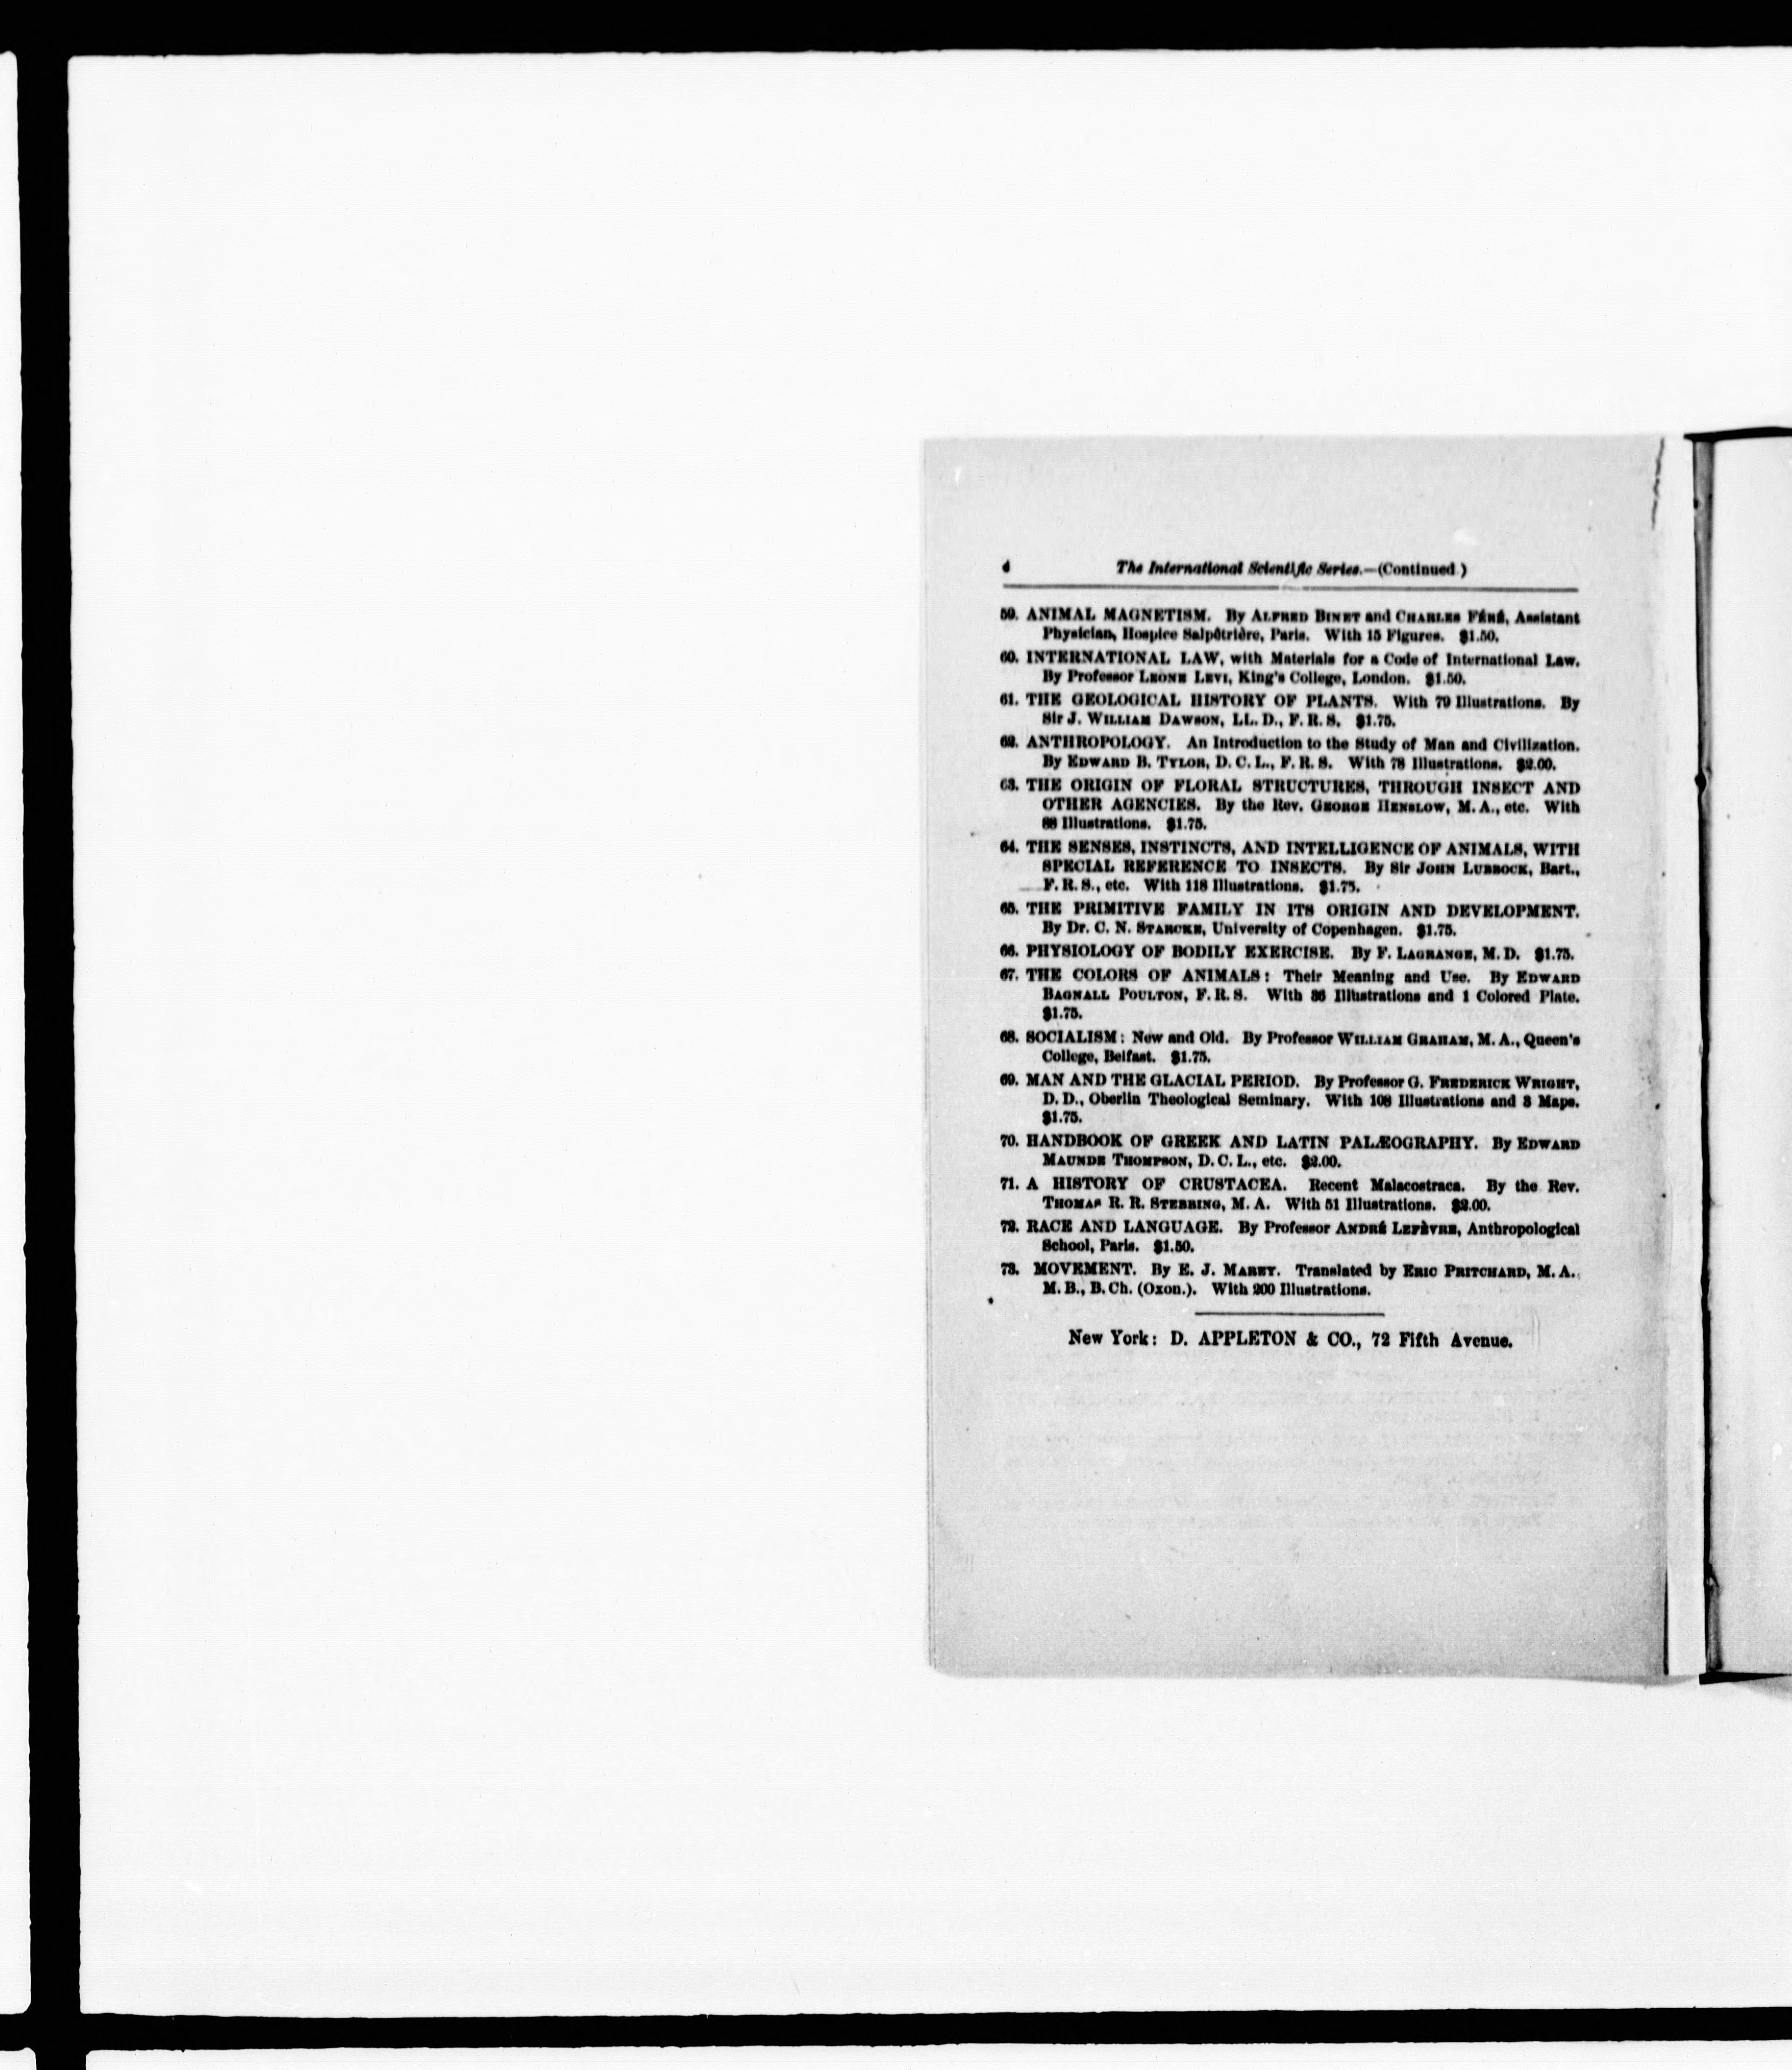 4 The International Scientific Series.—(Continued.)
59. ANIMAL MAGNETISM. By ALFRED BINET and CHARLES FÉRÉ, Assistant
Physician, Hospice Salpêtrière, Paris. With 15 Figures. $1.50.
60. INTERNATIONAL LAW, with Materials for a Code of International Law.
By Professor LEONE LEVI, King's College, London. $1.50.
61. THE GEOLOGICAL HISTORY OF PLANTS. With 79 Illustrations. By
Sir J. WILLIAM DAWSON, LL. D., F. R. S. $1.75.
62. ANTHROPOLOGY. An Introduction to the Study of Man and Civilization.
By EDWARD B. TYLOR, D. C. L., F. R. S. With 78 Illustrations. $2.00.
63. THE ORIGIN OF FLORAL STRUCTURES, THROUGH INSECT AND
OTHER AGENCIES. By the Rev. GEORGE HENSLOW, M. A., etc. With
88 Illustrations. $1.75.
64. THE SENSES, INSTINCTS, AND INTELLIGENCE OF ANIMALS, WITH
SPECIAL REFERENCE TO INSECTS. By Sir JOHN LUBBOCK, Bart.,
F. R. S., etc. With 118 Illustrations. $1.75.
65. THE PRIMITIVE FAMILY IN ITS ORIGIN AND DEVELOPMENT.
By Dr. C. N. STARCKE, University of Copenhagen. $1.75.
66. PHYSIOLOGY OF BODILY EXERCISE. By F. LAGRANGE, M. D. $1.75.
67. THE COLORS OF ANIMALS: Their Meaning and Use. By EDWARD
BAGNALL POULTON, F. R. S. With 36 Illustrations and 1 Colored Plate.
$1.75.
68. SOCIALISM: New and Old. By Professor WILLIAM GRAHAM, M. A., Queen's
College, Belfast. $1.75.
69. MAN AND THE GLACIAL PERIOD. By Professor G. FREDERICK WRIGHT,
D. D., Oberlin Theological Seminary. With 108 Illustrations and 3 Maps.
$1.75.
70. HANDBOOK OF GREEK AND LATIN PALÆOGRAPHY. By EDWARD
MAUNDE THOMPSON, D. C. L., etc. $2.00.
71. A HISTORY OF CRUSTACEA. Recent Malacostraca. By the Rev.
THOMAS R. R. STEBBING, M. A. With 51 Illustrations. $2.00.
72. RACE AND LANGUAGE. By Professor ANDRÉ LEFÈVRE, Anthropological
School, Paris. $1.50.
73. MOVEMENT. By E. J. MAREY. Translated by ERIC PRITCHARD, M. A.,
M. B., B. Ch. (Oxon.). With 200 Illustrations.
New York: D. APPLETON & CO., 72 Fifth Avenue.